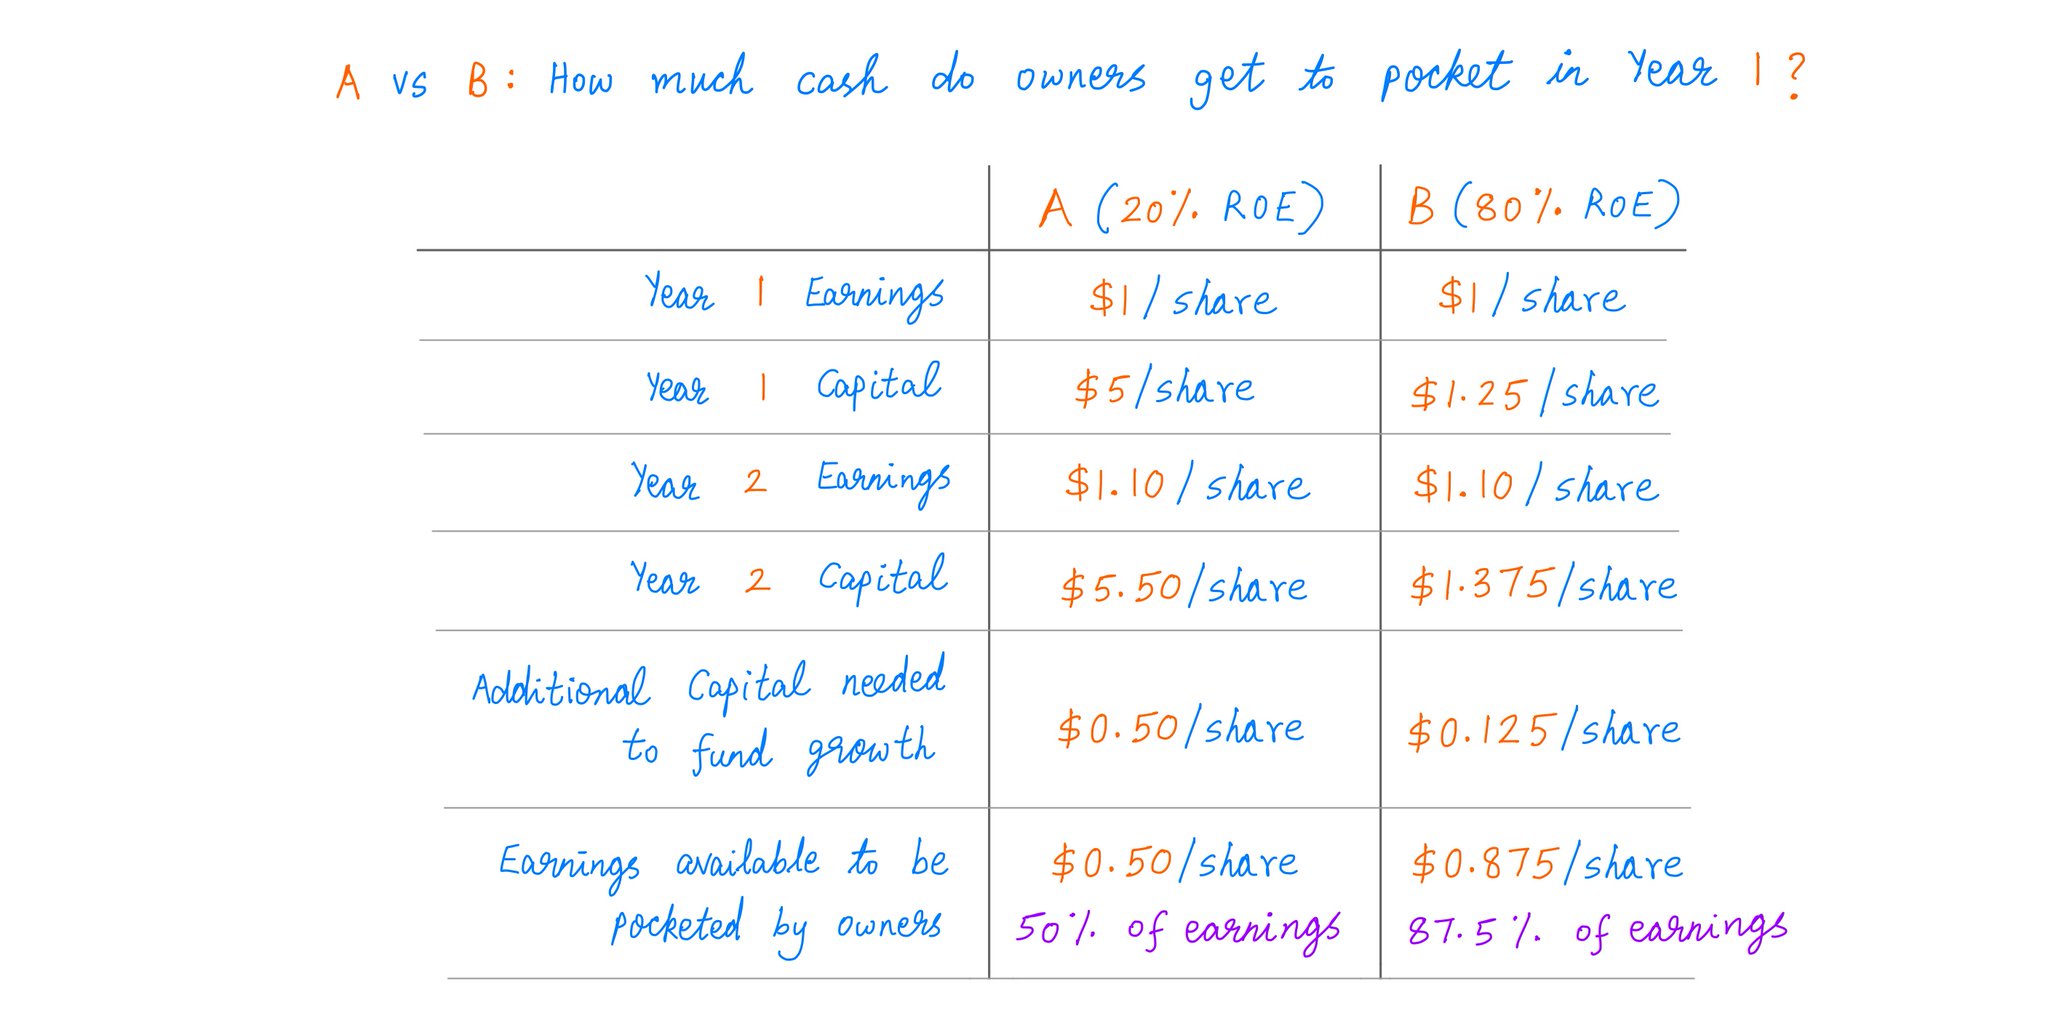 A vs B: How much cash do owners get to pocket in Year 1?
A (20% ROE) B (80% ROE)
Year 1 Earnings $1/share $1/share
Year 1 Capital $5/share $1.25/share
Year 2 Earnings $1.10/share $1.10/share
Year 2 Capital $5.50/share $1.375/share
Additional Capital needed
to fund growth $0.50/share $0.125/share
Earnings available to be $0.50/share $0.875/share
pocketed by owners 50% of earnings 87.5% of earnings